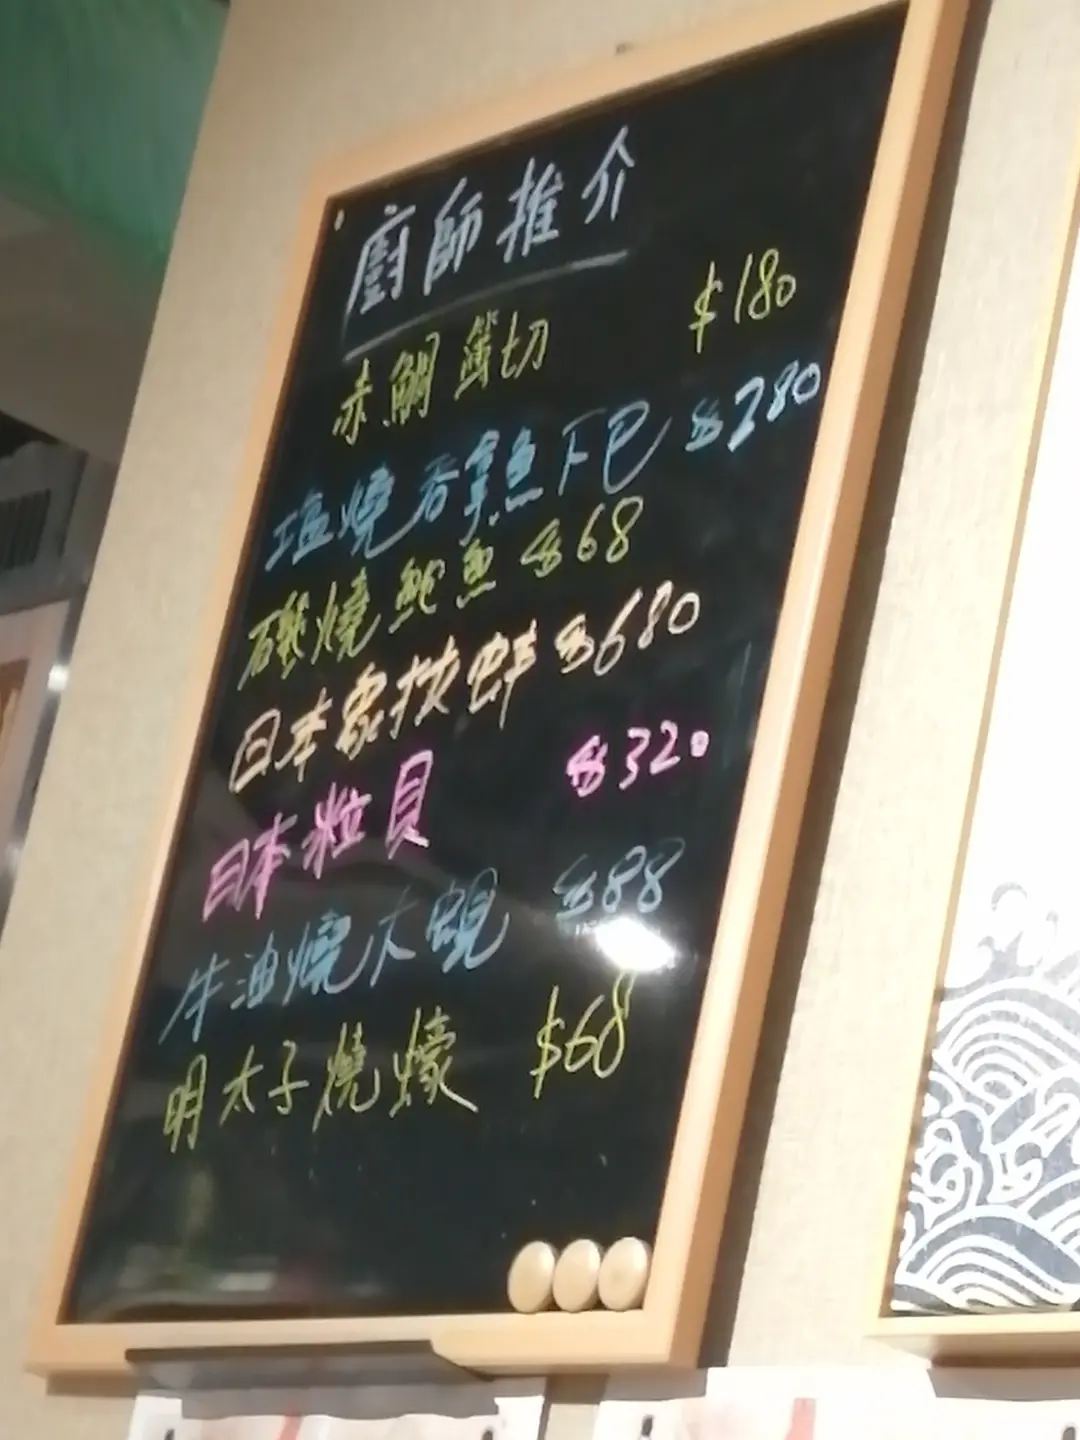 廚師推介
赤鯛薄切 $180
塩燒吞拿魚下巴 $280
磯燒鮑魚 $68
日本象拔蚌 $680
日本粒貝 $320
牛油燒大蜆 $88
明太子燒蠔 $68